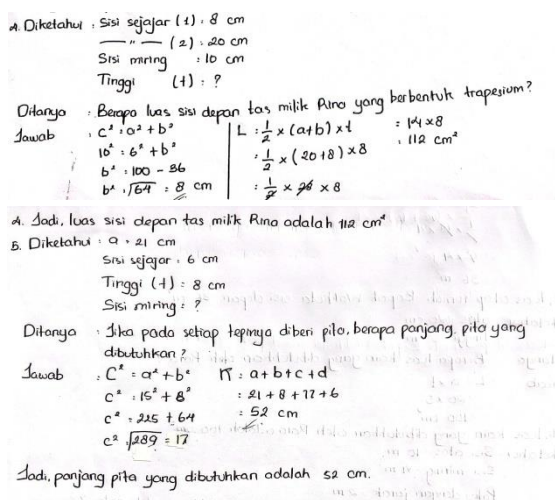 4. Diketahui : Sisi sejajar (1) : 8 cm
—— " —— (2) : 20 cm
Sisi miring : 10 cm
Tinggi (t) : ?
Ditanya : Berapa luas sisi depan tas milik Rina yang berbentuk trapesium?
Jawab : c² : a² + b²
10² : 6² + b²
b² : 100 - 36
b² : √64 : 8 cm
L : 1/2 × (a+b) × t
: 1/2 × (20+8) × 8
: 1/2 × 28 × 8
: 14 × 8
: 112 cm²
4. Jadi, luas sisi depan tas milik Rina adalah 112 cm²
5. Diketahui : a : 21 cm
Sisi sejajar : 6 cm
Tinggi (t) : 8 cm
Sisi miring : ?
Ditanya : Jika pada setiap tepinya diberi pita, berapa panjang pita yang
dibutuhkan?
Jawab : C² : a² + b²
c² : 15² + 8²
c² : 225 + 64
c² : √289 = 17
K : a + b + c + d
: 21 + 8 + 17 + 6
: 52 cm
Jadi, panjang pita yang dibutuhkan adalah 52 cm.